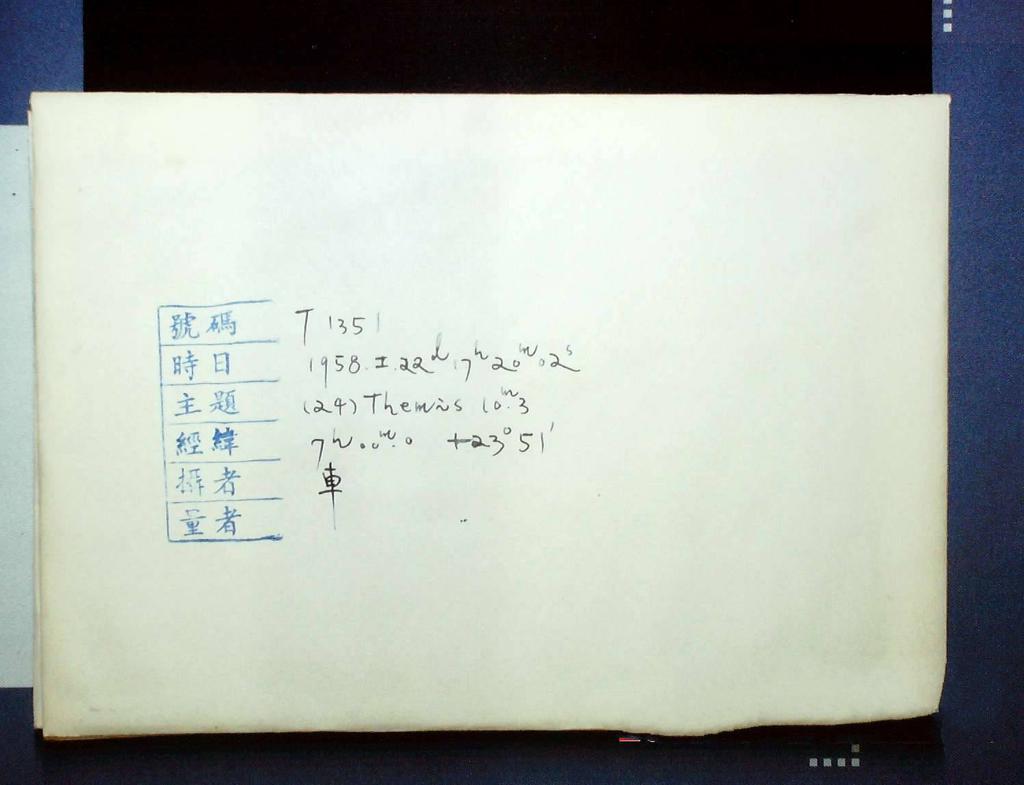 號碼 T 1351
時日 1958.I.22ᵈ 17ʰ 20ᵐ 02ˢ
主題 (24) Themis 10ᵐ.3
經緯 7ʰ 00ᵐ.0 +23° 51′
攝者 車
量者